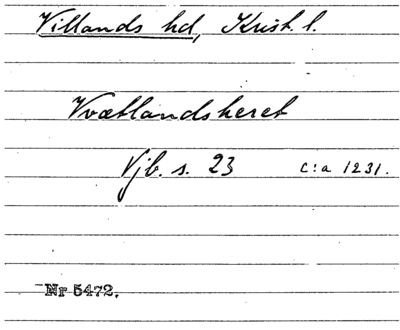 Villands hd, Krist. l.
Wvætlandsheret
Vjb. s. 23 c:a 1231.
Nr 5472.